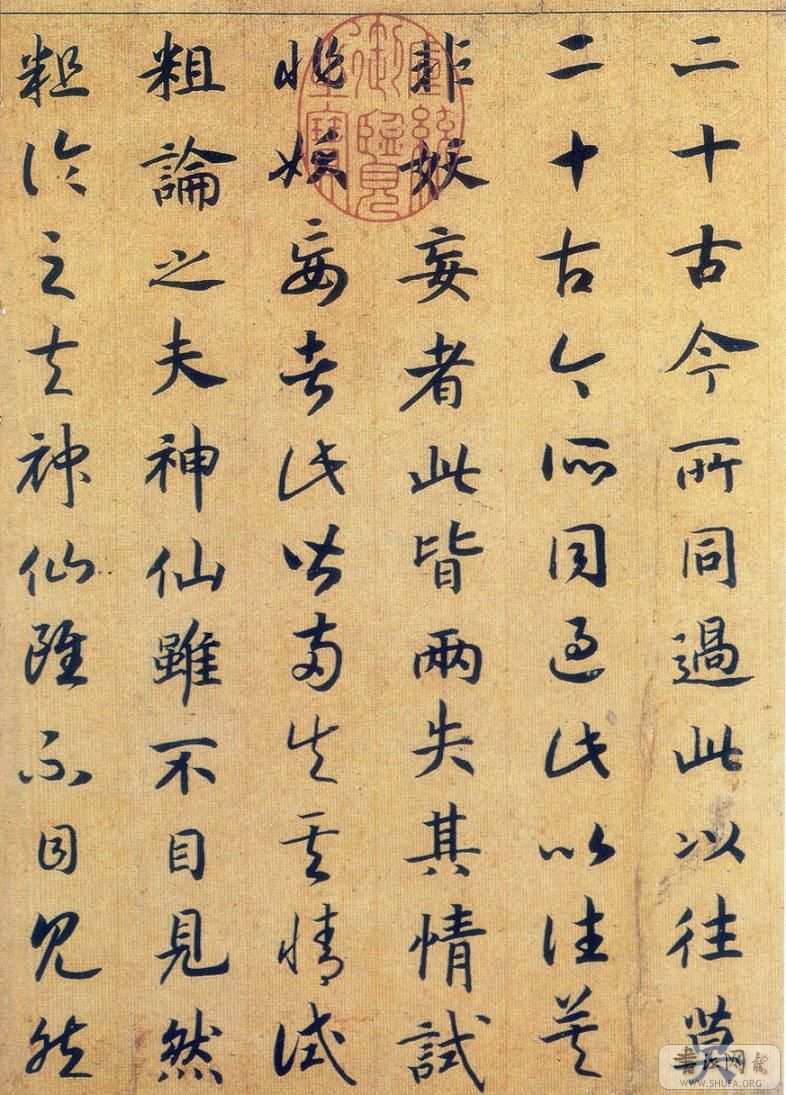 二十古今所同過此以往莫
二十古今所同過此以往莫
非妖妄者此皆兩失其情試
非妖妄者此皆兩失其情試
粗論之夫神仙雖不目見然
粗論之夫神仙雖不目見然
宣統御覽之寶
書法网
WWW.SHUFA.ORG